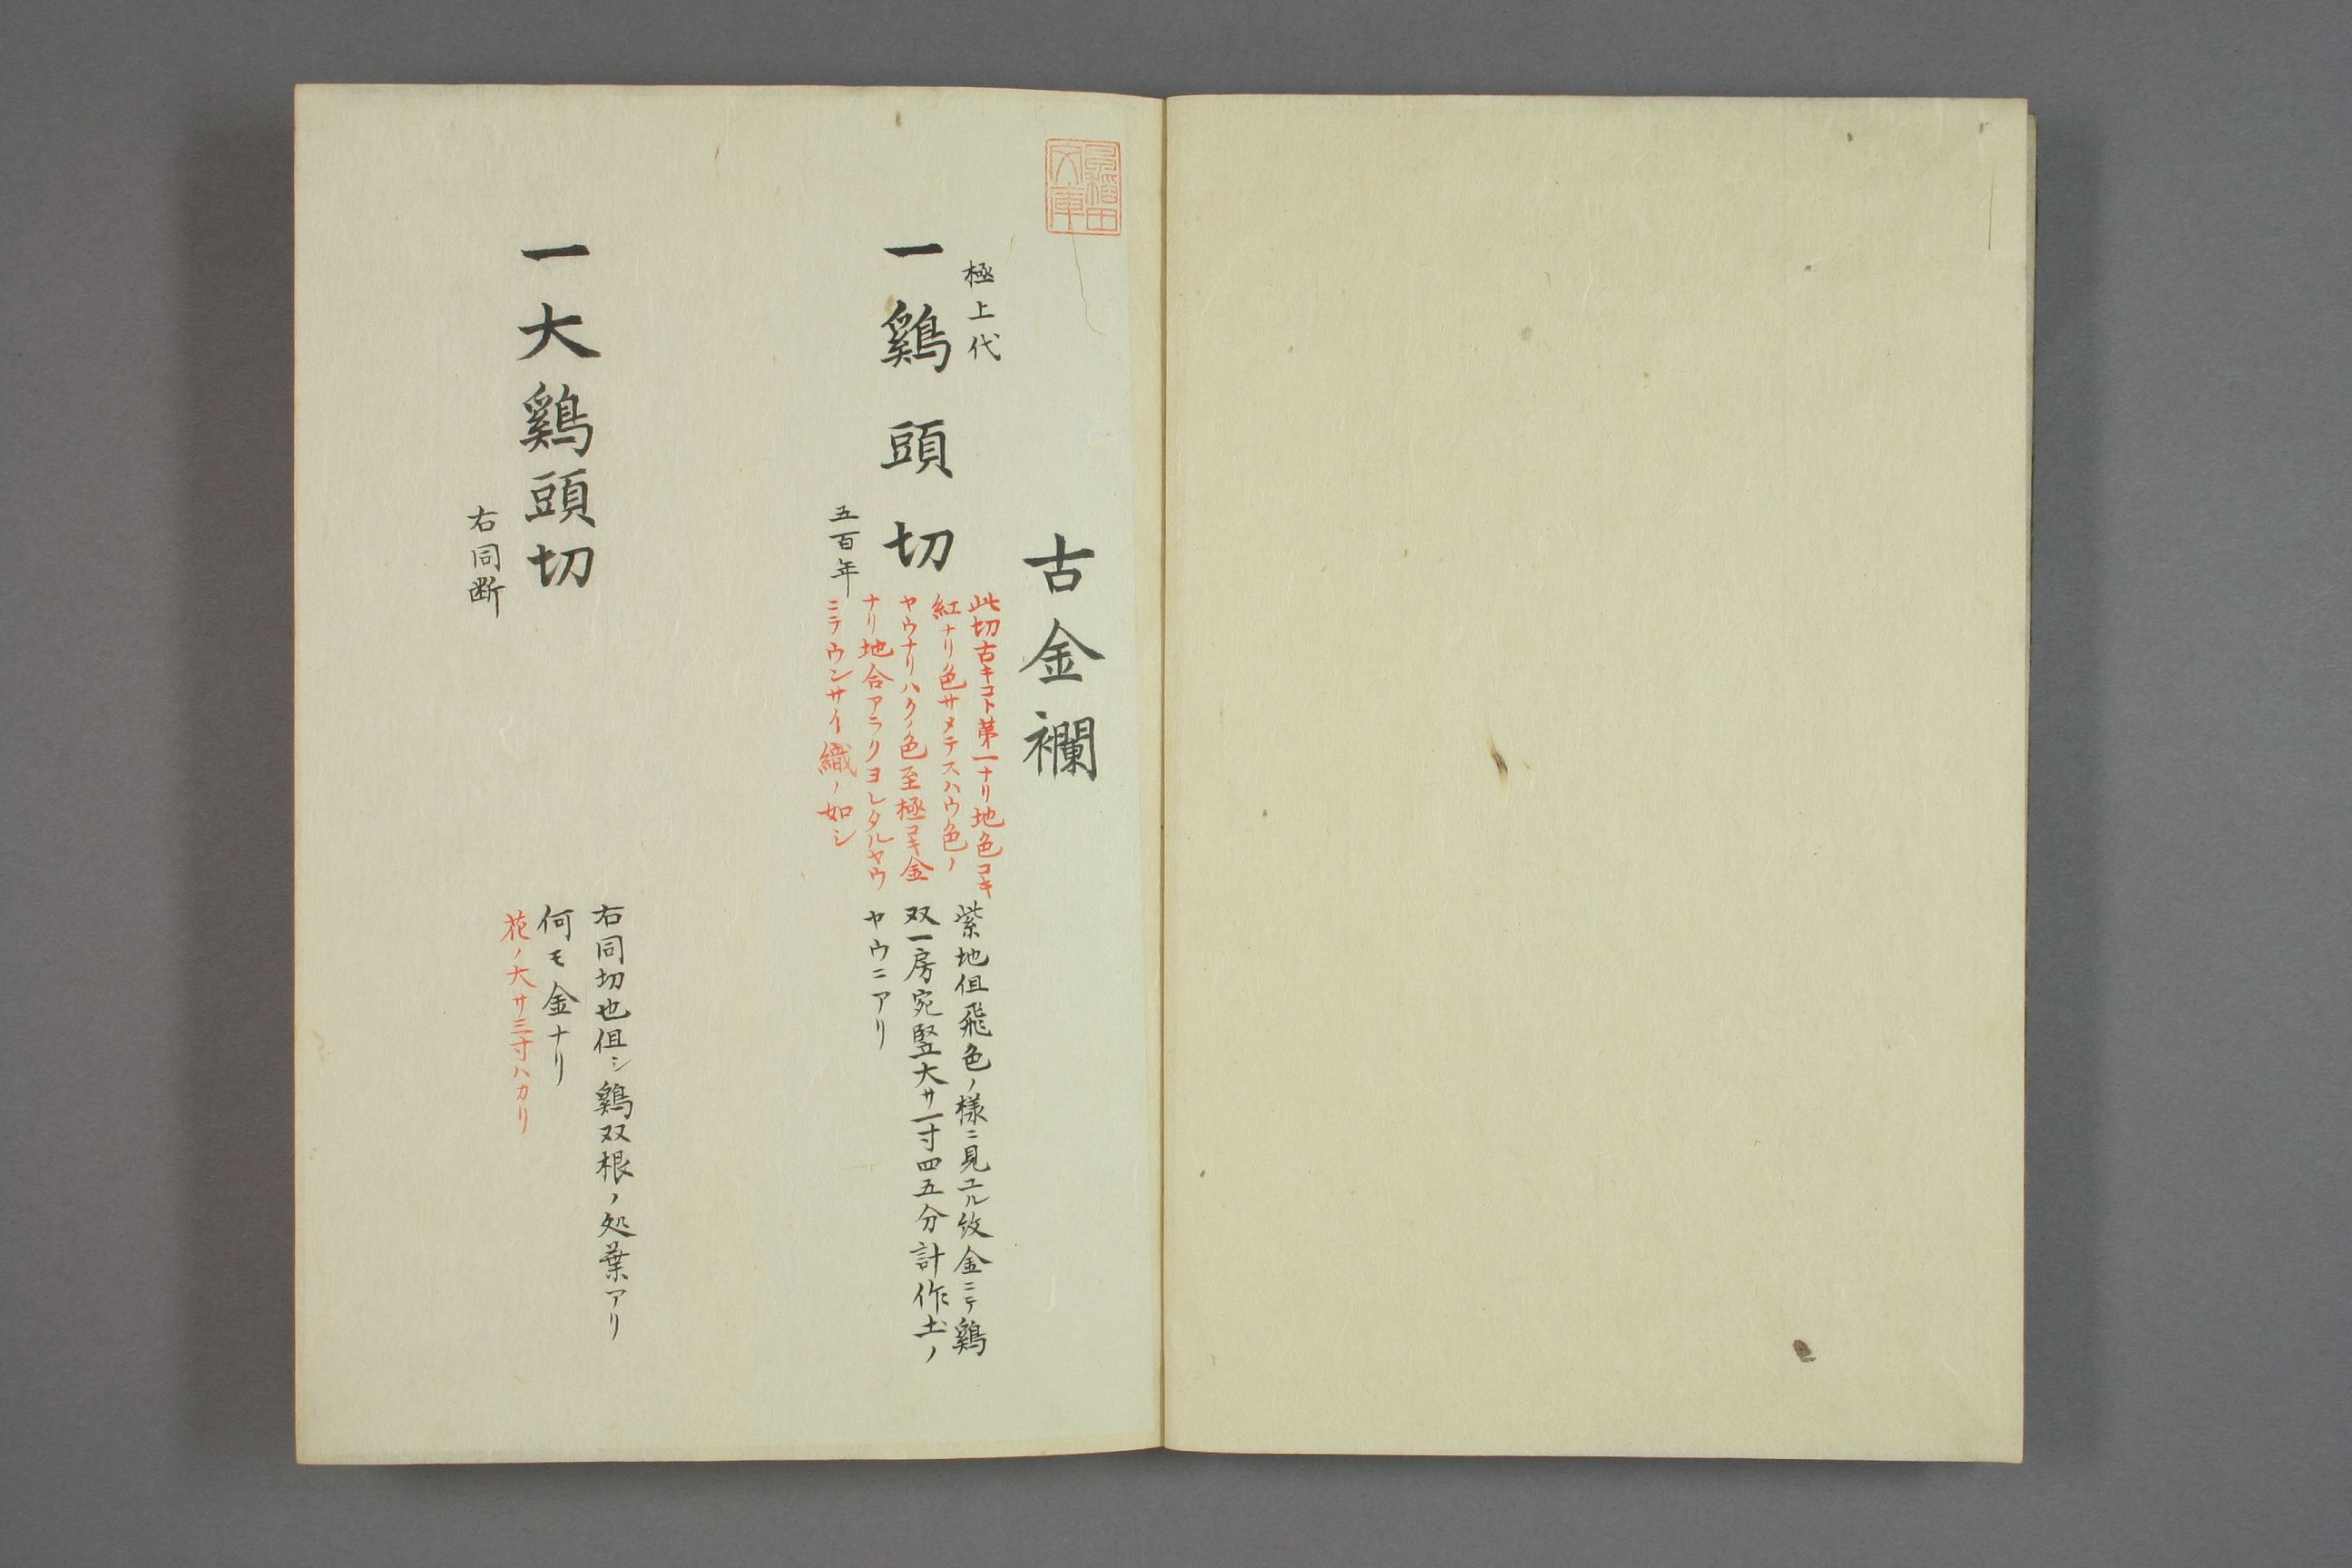 古金襴
極上代
一鷄頭切
五百年
此切古キコト第一ナリ地色コキ
紅ナリ色サメテスハウ色ノ
ヤウナリハクノ色至極コキ金
ナリ地合アラクヨレタルヤウ
ニテウンサイ織ノ如シ
紫地但飛色ノ様ニ見ユル紋金ニテ鷄
双一房宛竪大サ一寸四五分計作土ノ
ヤウニアリ
一大鷄頭切
右同断
右同切也但シ鷄双根ノ処葉アリ
何モ金ナリ
花ノ大サ三寸ハカリ